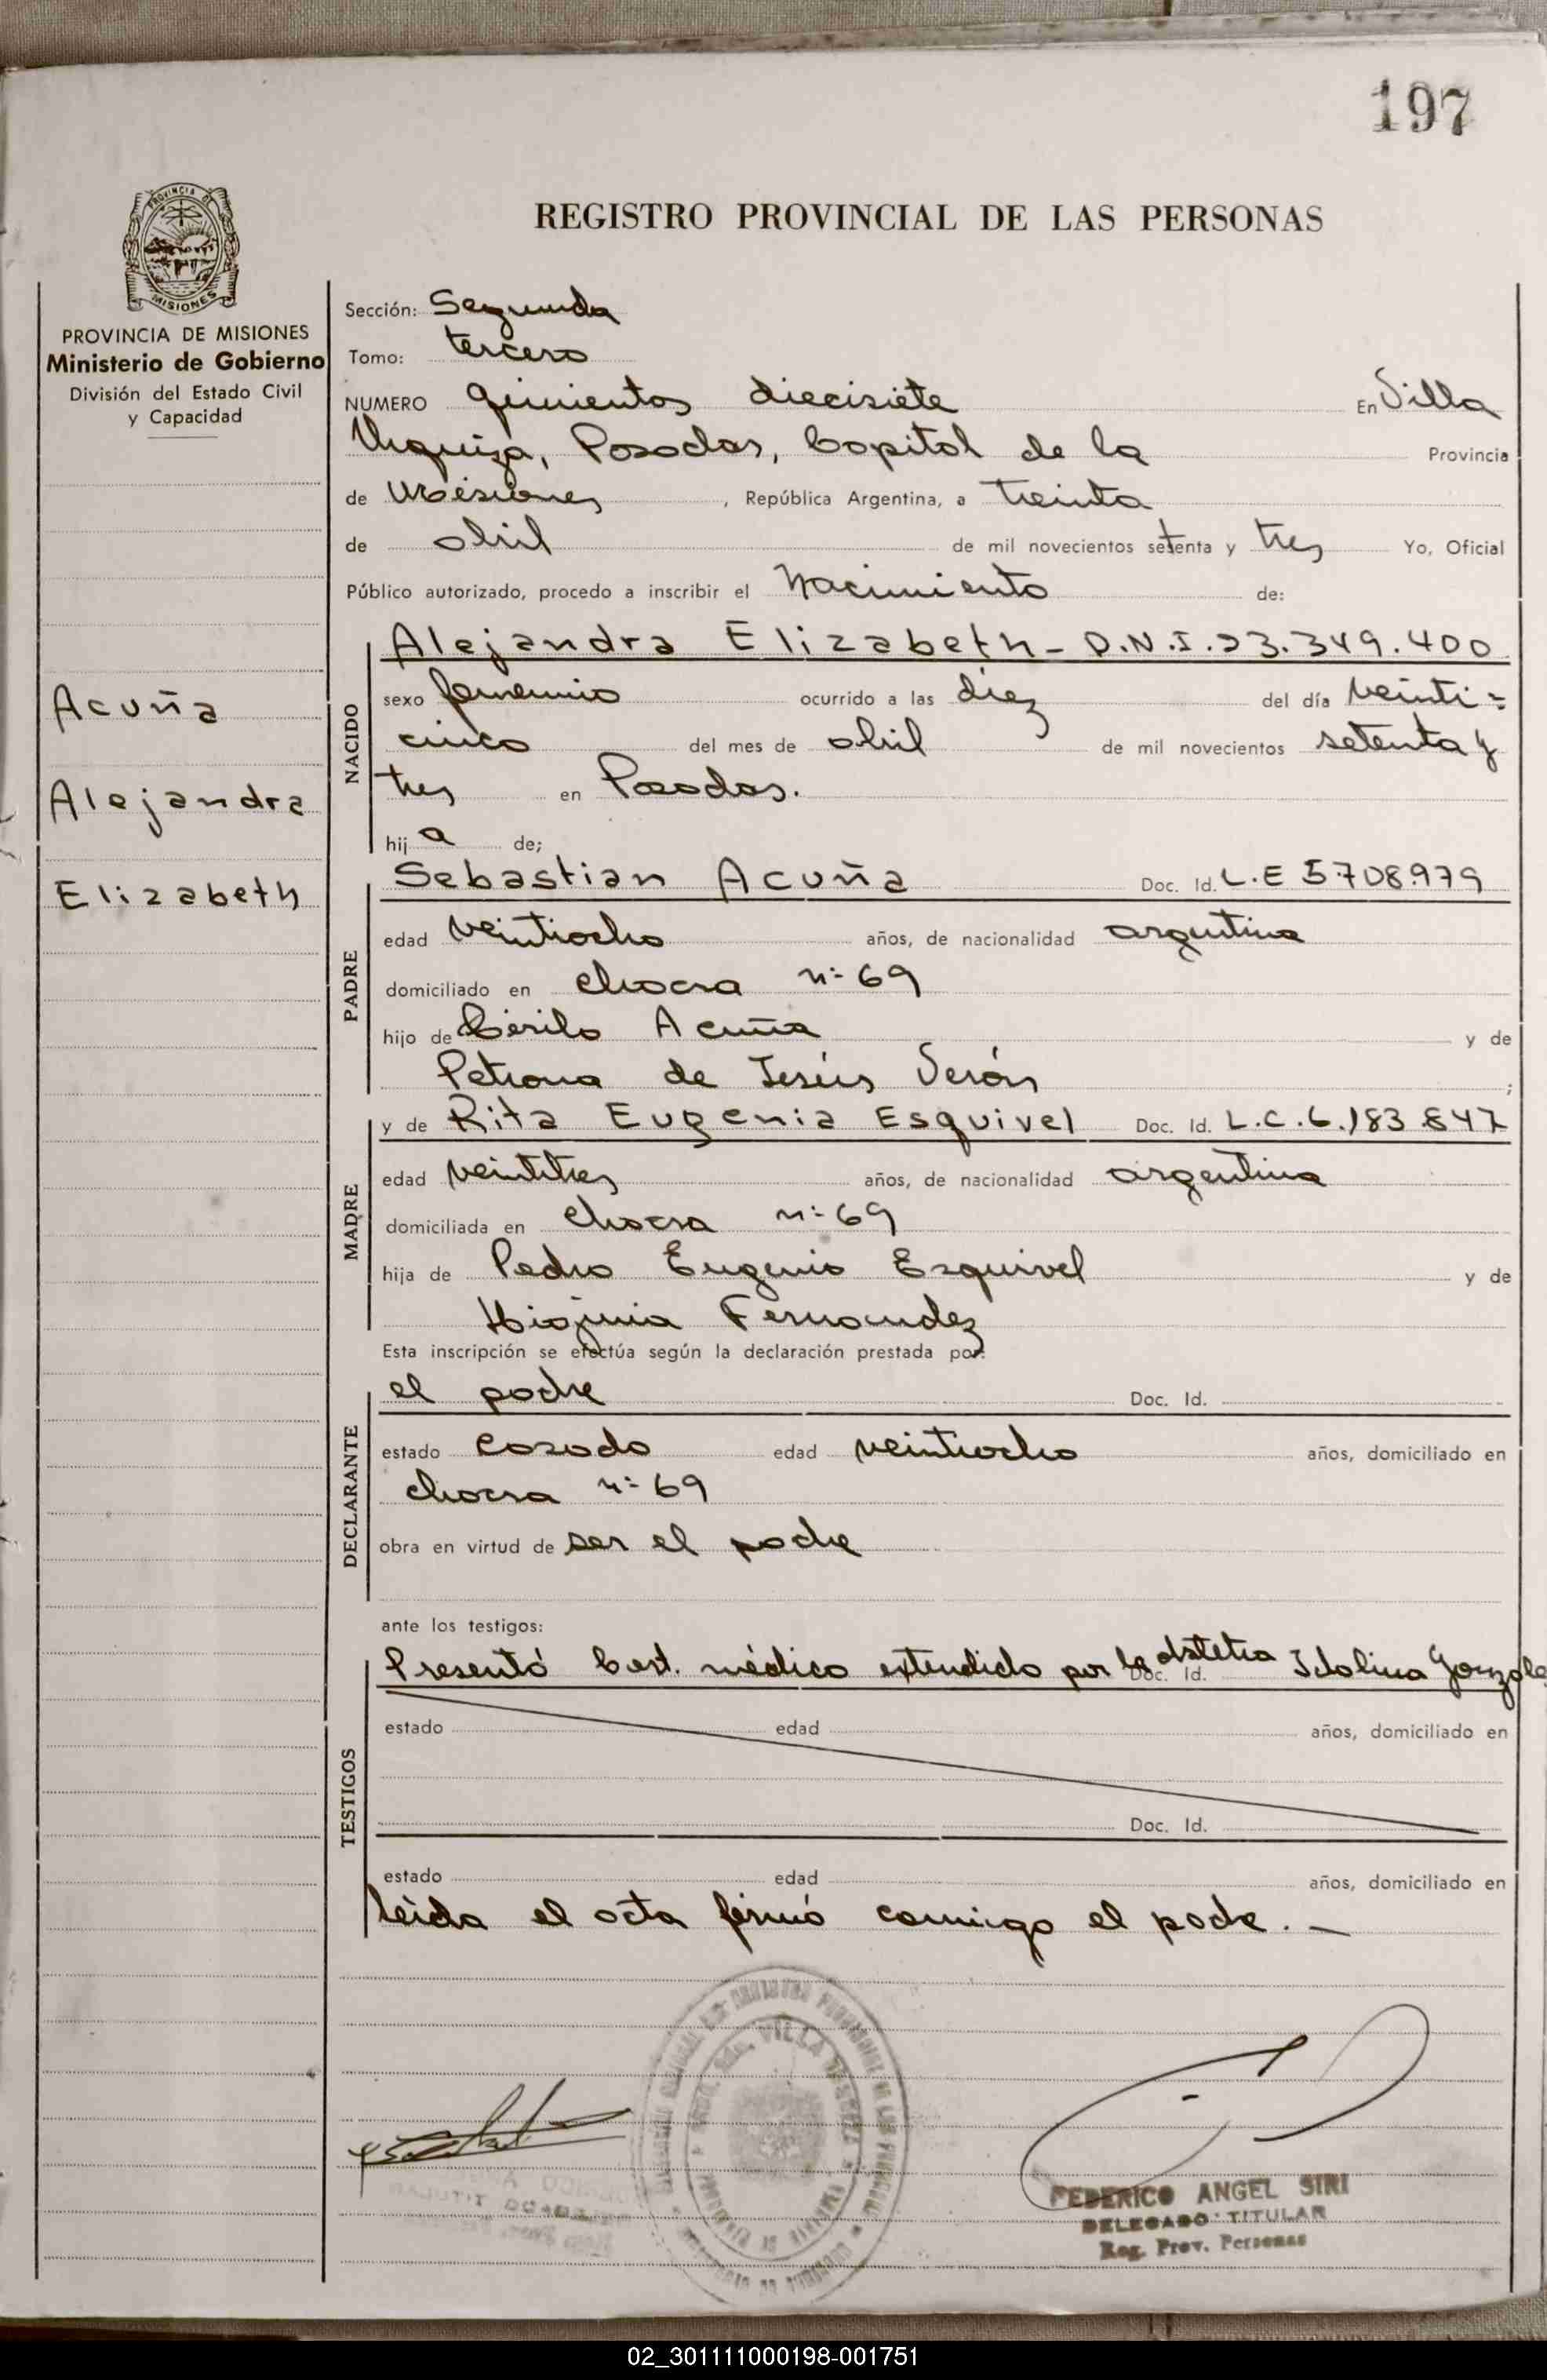 197
PROVINCIA DE MISIONES
REGISTRO PROVINCIAL DE LAS PERSONAS
PROVINCIA DE MISIONES
Ministerio de Gobierno
División del Estado Civil
y Capacidad
Acuña
Alejandra
Elizabeth
Sección: Segunda
Tomo: tercero
NUMERO quinientos diecisiete En Villa
Urquiza, Posadas, Capital de la Provincia
de Misiones, República Argentina, a treinta
de abril de mil novecientos setenta y tres Yo, Oficial
Público autorizado, procedo a inscribir el Nacimiento de:
NACIDO
Alejandra Elizabeth - D.N.I. 23.349.400
sexo femenino ocurrido a las diez del día veinti=
cinco del mes de abril de mil novecientos setenta y
tres en Posadas.
hija de;
PADRE
Sebastian Acuña Doc. Id. L.E 5708.979
edad veintiocho años, de nacionalidad argentina
domiciliado en chacra nº 69
hijo de Cirilo Acuña y de
Petrona de Jesús Verón ;
MADRE
y de Rita Eugenia Esquivel Doc. Id. L.C.6.183.847
edad veintitres años, de nacionalidad argentina
domiciliada en chacra nº 69
hija de Pedro Eugenio Esquivel y de
Higinia Fernandez
Esta inscripción se efectúa según la declaración prestada por:
DECLARANTE
el padre Doc. Id.
estado casado edad veintiocho años, domiciliado en
chacra nº 69
obra en virtud de ser el padre
ante los testigos:
TESTIGOS
Presentó Cert. médico extendido por la obstetra Idolina Gonzale
Doc. Id.
estado edad años, domiciliado en
Doc. Id.
estado edad años, domiciliado en
leida el acta firmó conmigo el padre. —
VILLA
FEDERICO ANGEL SIRI
DELEGADO TITULAR
Reg. Prov. Personas
02_301111000198-001751